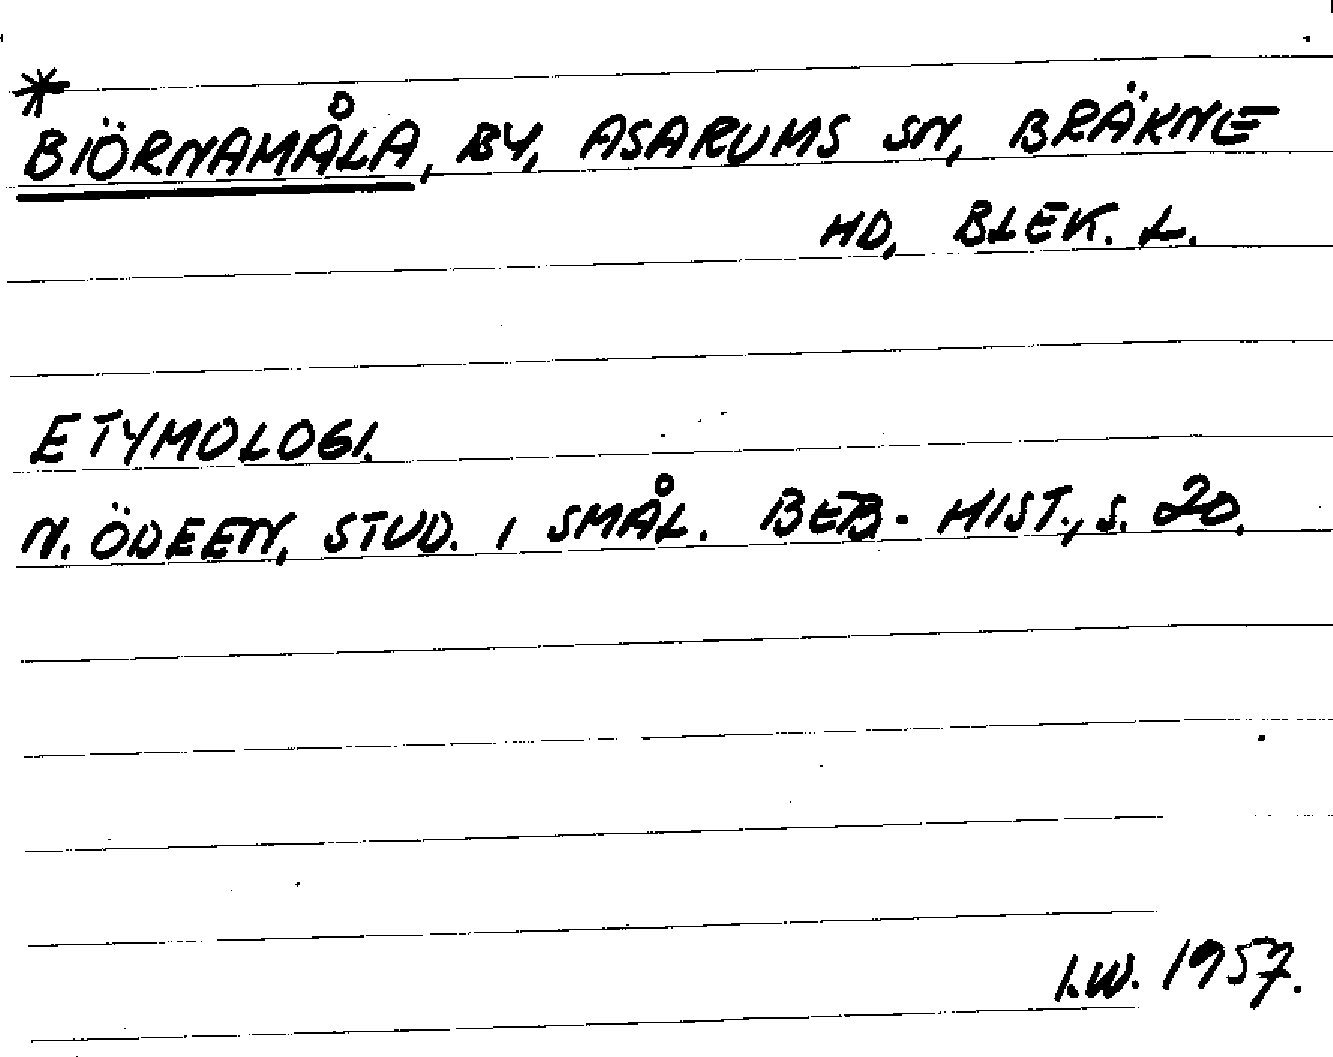 *
BIÖRNAMÅLA, BY, ASARUMS SN, BRÄKNE
HD, BLEK. L.
ETYMOLOGI.
N. ÖDEEN, STUD. I SMÅL. BEB. HIST., S. 20.
I.W. 1957.